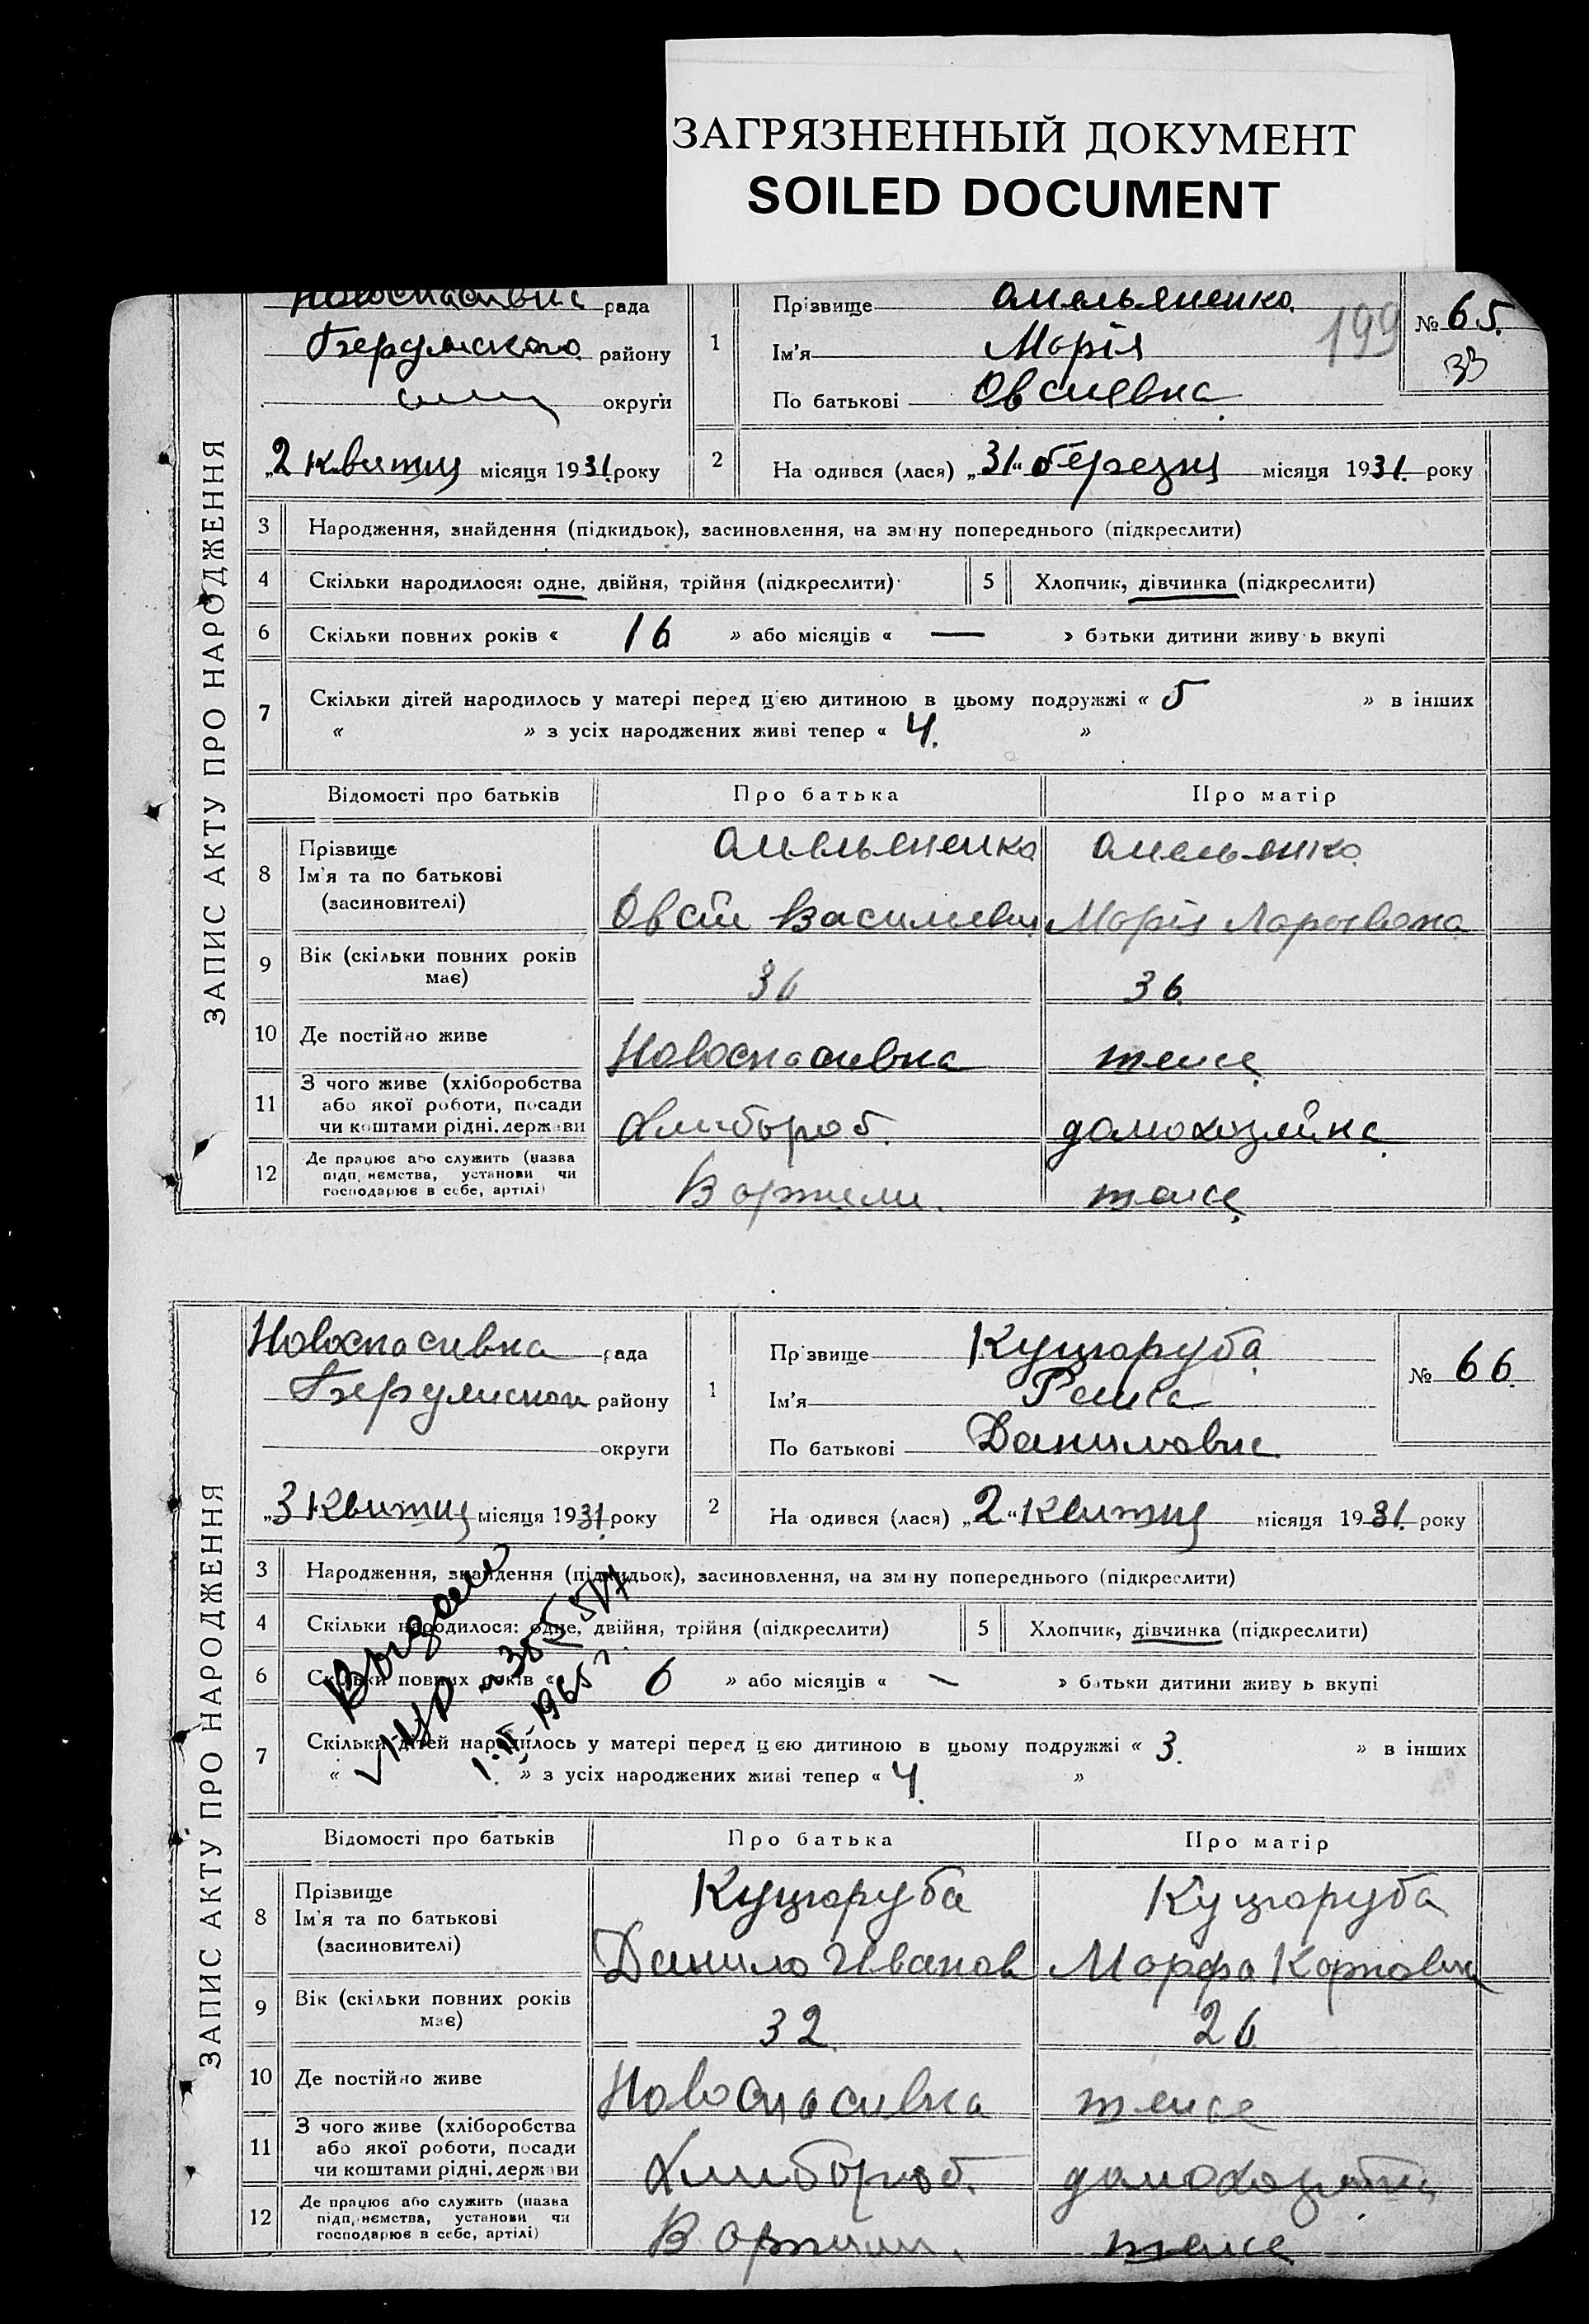 ЗАГРЯЗНЕННЫЙ ДОКУМЕНТ
SOILED DOCUMENT
ЗАПИС АКТУ ПРО НАРОДЖЕННЯ
Новоспасивка рада
району
округи
„2 квитня місяця 1931. року
1
Прізвище Омельяненко
Ім'я Марія
По батькові Овсиевна
199
№ 65.
33
2
На одився (лася) „31“ березня місяця 1931. року
3 Народження, знайдення (підкидьок), засиновлення, на зм ну попереднього (підкреслити)
4 Скільки народилося: одне, двійня, трійня (підкреслити)
5 Хлопчик, дівчинка (підкреслити)
6 Скільки повних років « 16 » або місяців « — » батьки дитини живу ь вкупі
7 Скільки дітей народилось у матері перед ц єю дитиною в цьому подружжі « 5 » в інших
« » з усіх народжених живі тепер « 4. »
Відомості про батьків Про батька Про матір
8 Прізвище
Ім'я та по батькові
(засиновителі)
Омельяненко
Овсій Василиевич
Марія
9 Вік (скільки повних років має) 36 36.
10 Де постійно живе Новоспасивка тоже
11 З чого живе (хліборобства
або якої роботи, посади
чи коштами рідні, держави
Хлибороб. домохозяйка
12 Де працює або служить (назва
підп, иємства, установи чи
господарює в себе, артілі)
В артили. тоже
ЗАПИС АКТУ ПРО НАРОДЖЕННЯ
Новоспасивка рада
району
округи
„3 Квитня місяця 1931. року
1
Пр звище Куцаруба
Ім'я Раиса
По батькові Даниловна
№ 66.
2
На одився (лася) „2“ Квитня місяця 1931. року
3 Народження, знайдення (підкидьок), засиновлення, на зм ну попереднього (підкреслити)
4 Скільки народилося: одне, двійня, трійня (підкреслити)
5 Хлопчик, дівчинка (підкреслити)
6 Скільки повних років « 6 » або місяців « — » батьки дитини живу ь вкупі
7 Скільки дітей народилось у матері перед ц єю дитиною в цьому подружжі « 3. » в інших
« » з усіх народжених живі тепер « 4. »
Відомості про батьків Про батька Про матір
8 Прізвище
Ім'я та по батькові
(засиновителі)
Куцаруба Куцаруба
Данило Иванов Марфа Карповна
9 Вік (скільки повних років має) 32. 26
10 Де постійно живе Новоспасивка тоже
11 З чого живе (хліборобства
або якої роботи, посади
чи коштами рідні, держави
Хлибороб. домохозяйка
12 Де працює або служить (назва
підп, иємства, установи чи
господарює в себе, артілі)
В артили. тоже